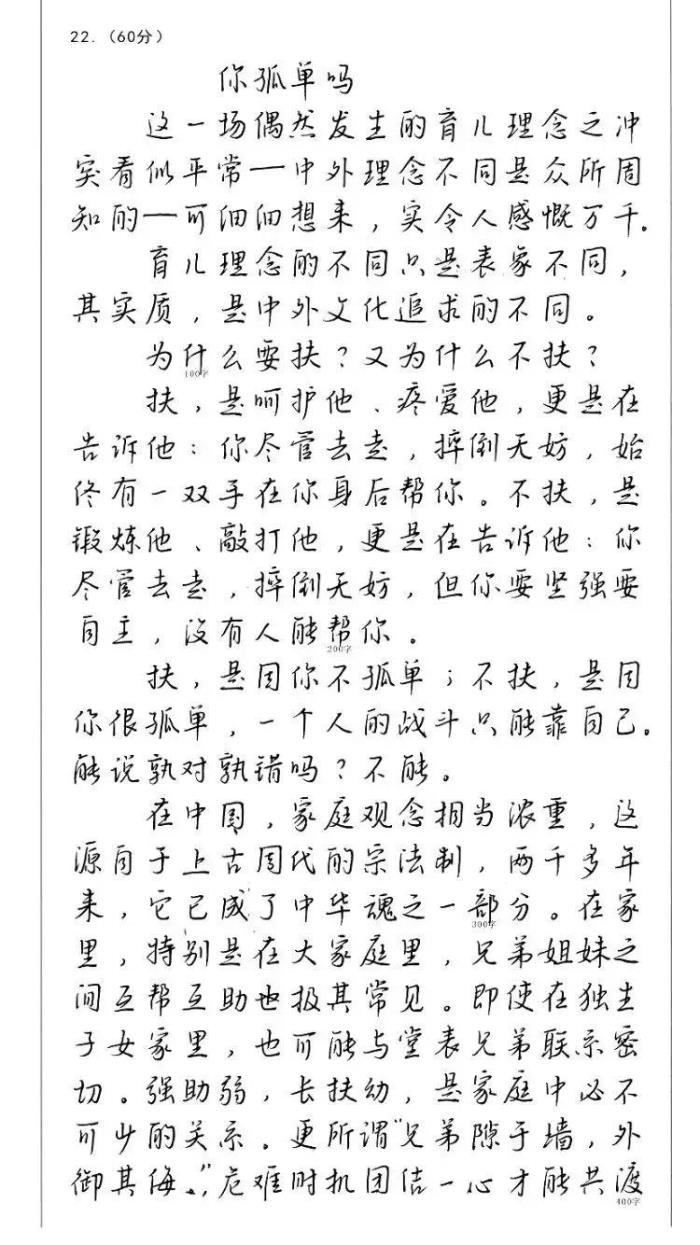 22.（60分）
你孤单吗
这一场偶然发生的育儿理念之冲
突看似平常——中外理念不同是众所周
知的——可细细想来，实令人感慨万千。
育儿理念的不同只是表象不同，
其实质，是中外文化追求的不同。
为什么要扶？又为什么不扶？
100字
扶，是呵护他、疼爱他，更是在
告诉他：你尽管去走，摔倒无妨，始
终有一双手在你身后帮你。不扶，是
锻炼他、敲打他，更是在告诉他：你
尽管去走，摔倒无妨，但你要坚强要
自主，没有人能帮你。
200字
扶，是因你不孤单；不扶，是因
你很孤单，一个人的战斗只能靠自己。
能说孰对孰错吗？不能。
在中国，家庭观念相当浓重，这
源自于上古周代的宗法制，两千多年
来，它已成了中华魂之一部分。在家
300字
里，特别是在大家庭里，兄弟姐妹之
间互帮互助也极其常见。即使在独生
子女家里，也可能与堂表兄弟联系密
切。强助弱，长扶幼，是家庭中必不
可少的关系。更所谓“兄弟隙于墙，外
御其侮。”危难时机团结一心才能共渡
400字